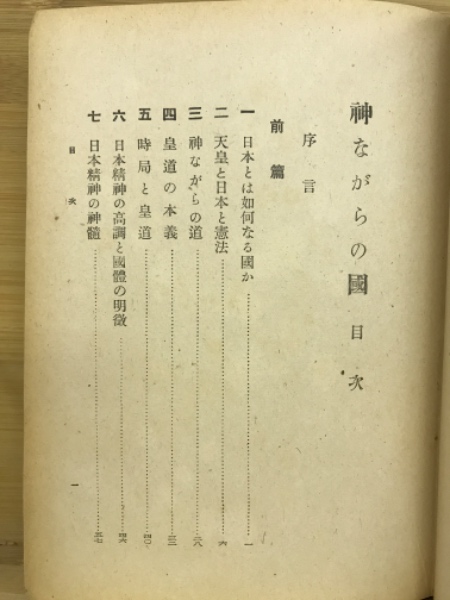 神ながらの國 目次
序言
前篇
一 日本とは如何なる國か 一
二 天皇と日本と憲法 六
三 神ながらの道 二八
四 皇道の本義 三二
五 時局と皇道 四〇
六 日本精神の高調と國體の明徵 四六
七 日本精神の神髓 五七
目次 一